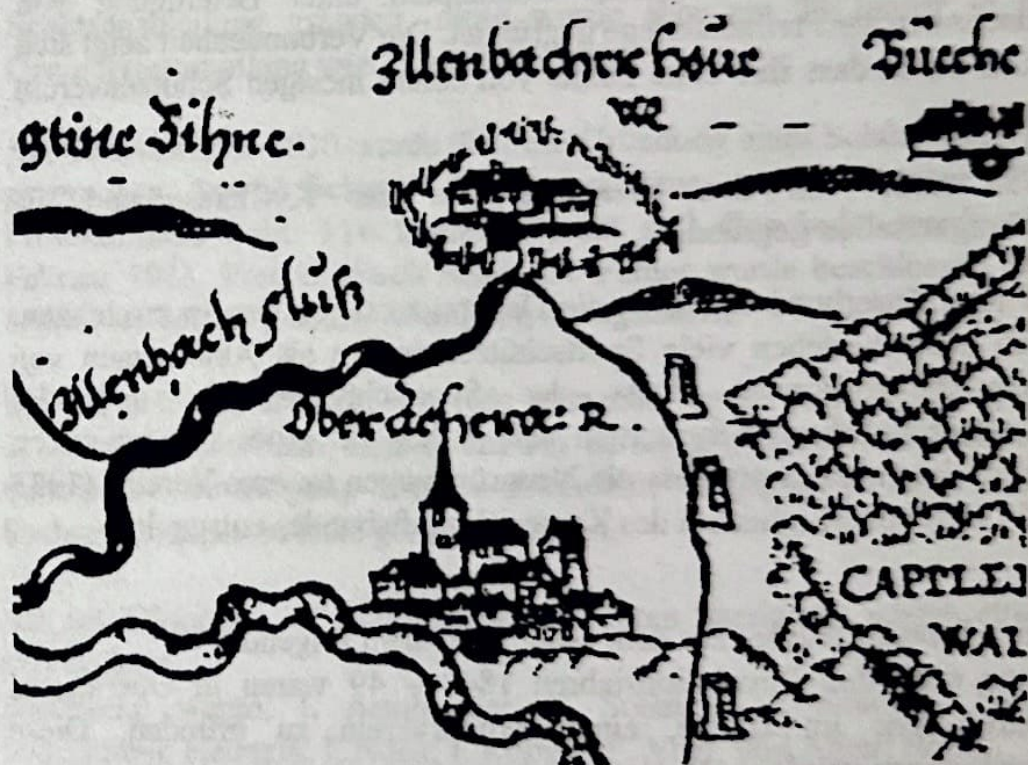 Illenbacher höue
Büeche
gstine Bihne.
Illenbach fluß
Ober Achern: R.
CAPELLE
WAL